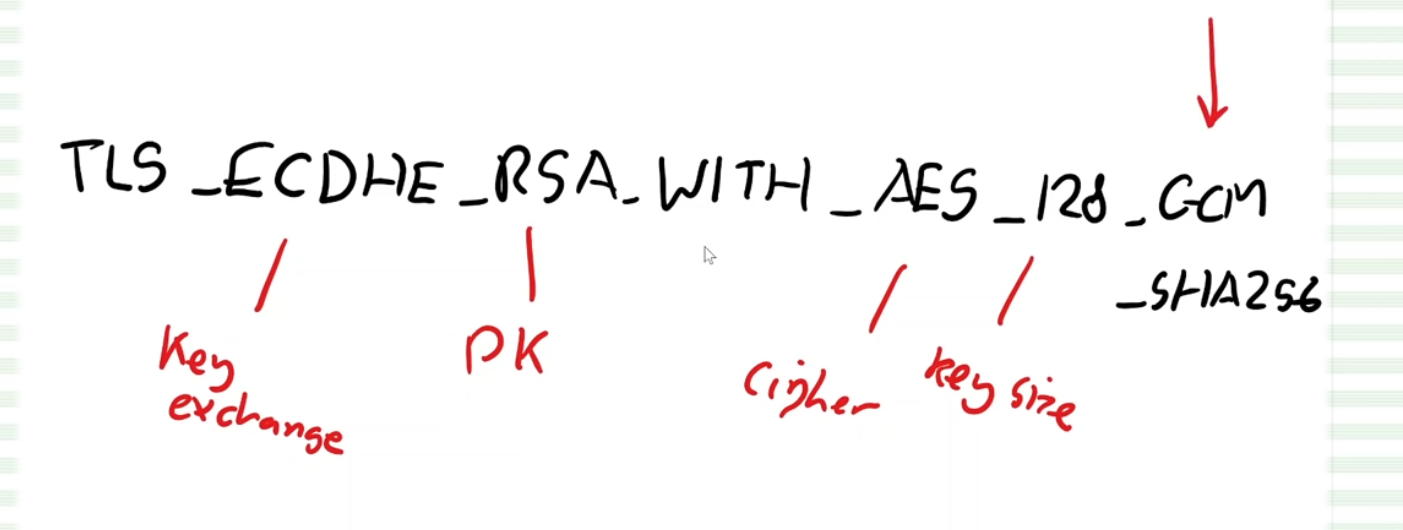 TLS_ECDHE_RSA_WITH_AES_128_GCM
_SHA256
Key
exchange
PK
Cipher
key size